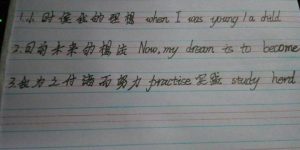 1.小时候我的理想 when I was young/a child
2.目前未来的想法 Now, my dream is to become
3.我为之付诸而努力 practise 实验 study hard